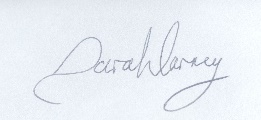 Sarah Varney